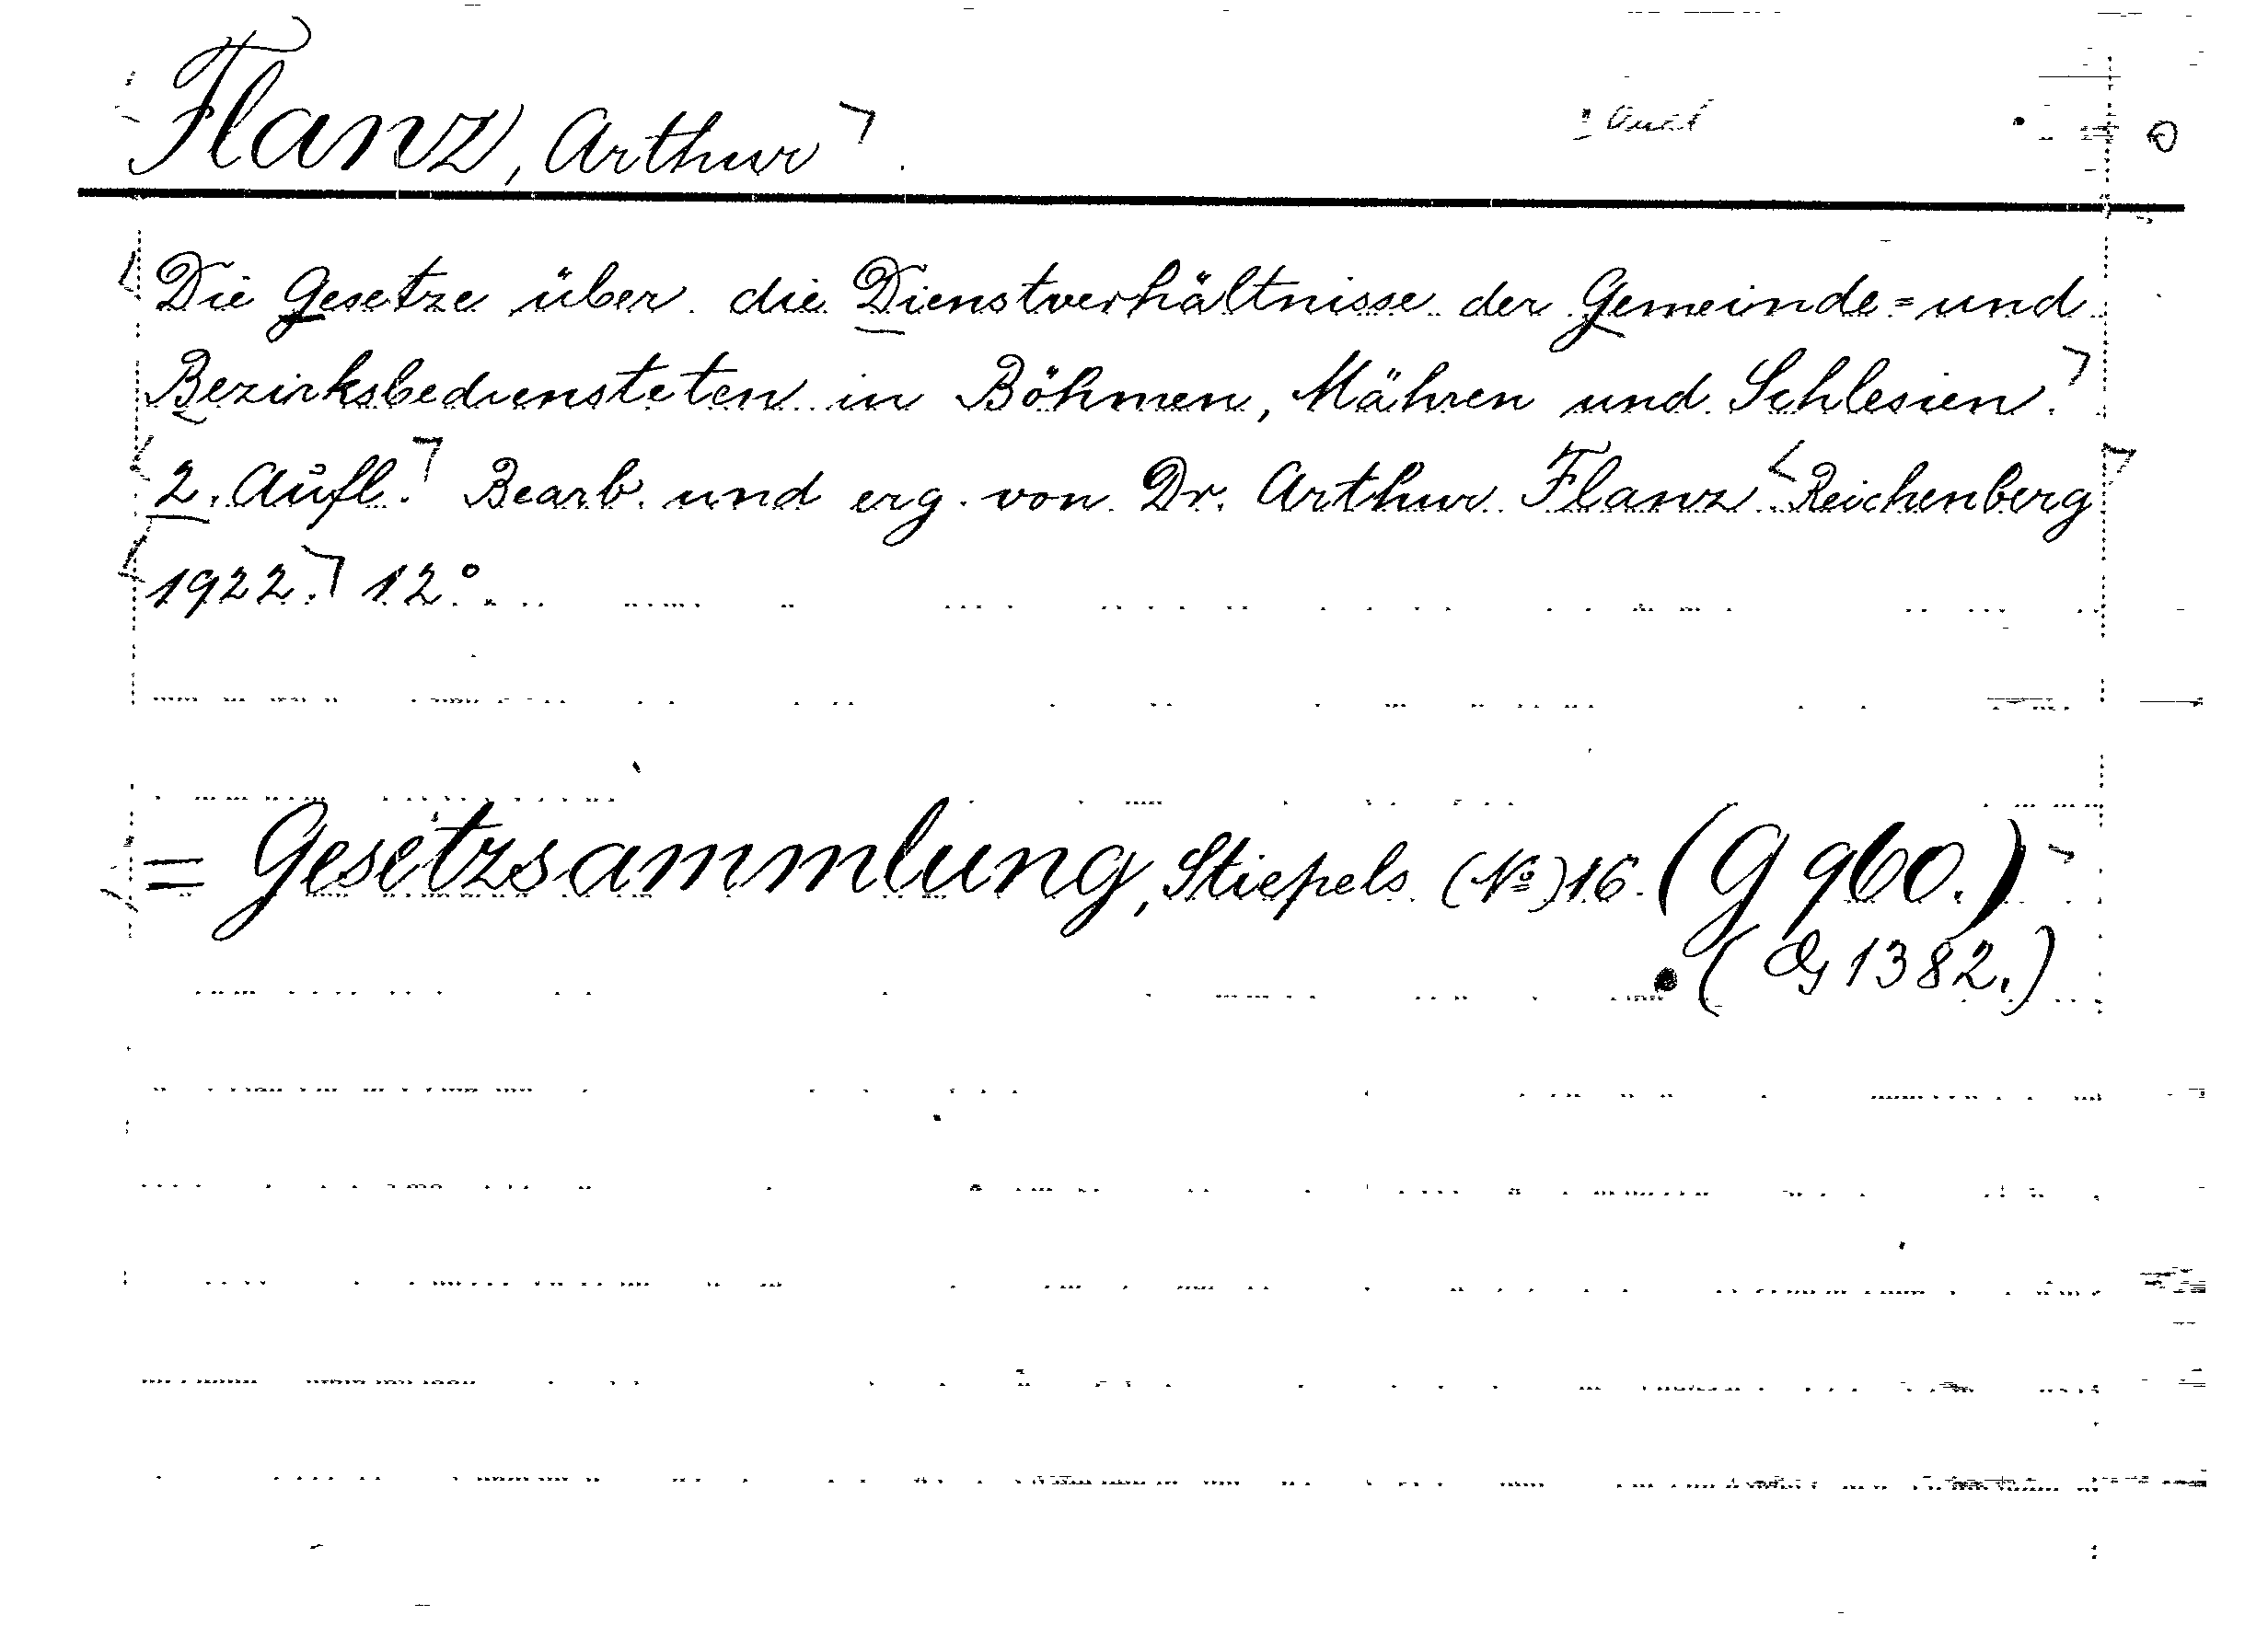 Flanz, Arthur
Die Gesetze über die Dienstverhältnisse der Gemeinde= und
Bezirksbediensteten in Böhmen, Mähren und Schlesien.
2. Aufl. Bearb. und erg. von Dr. Arthur Flanz Reichenberg
1922. 12°.
= Gesetzsammlung, Stiepels (№) 16. (G 960.)
(G 1382.)